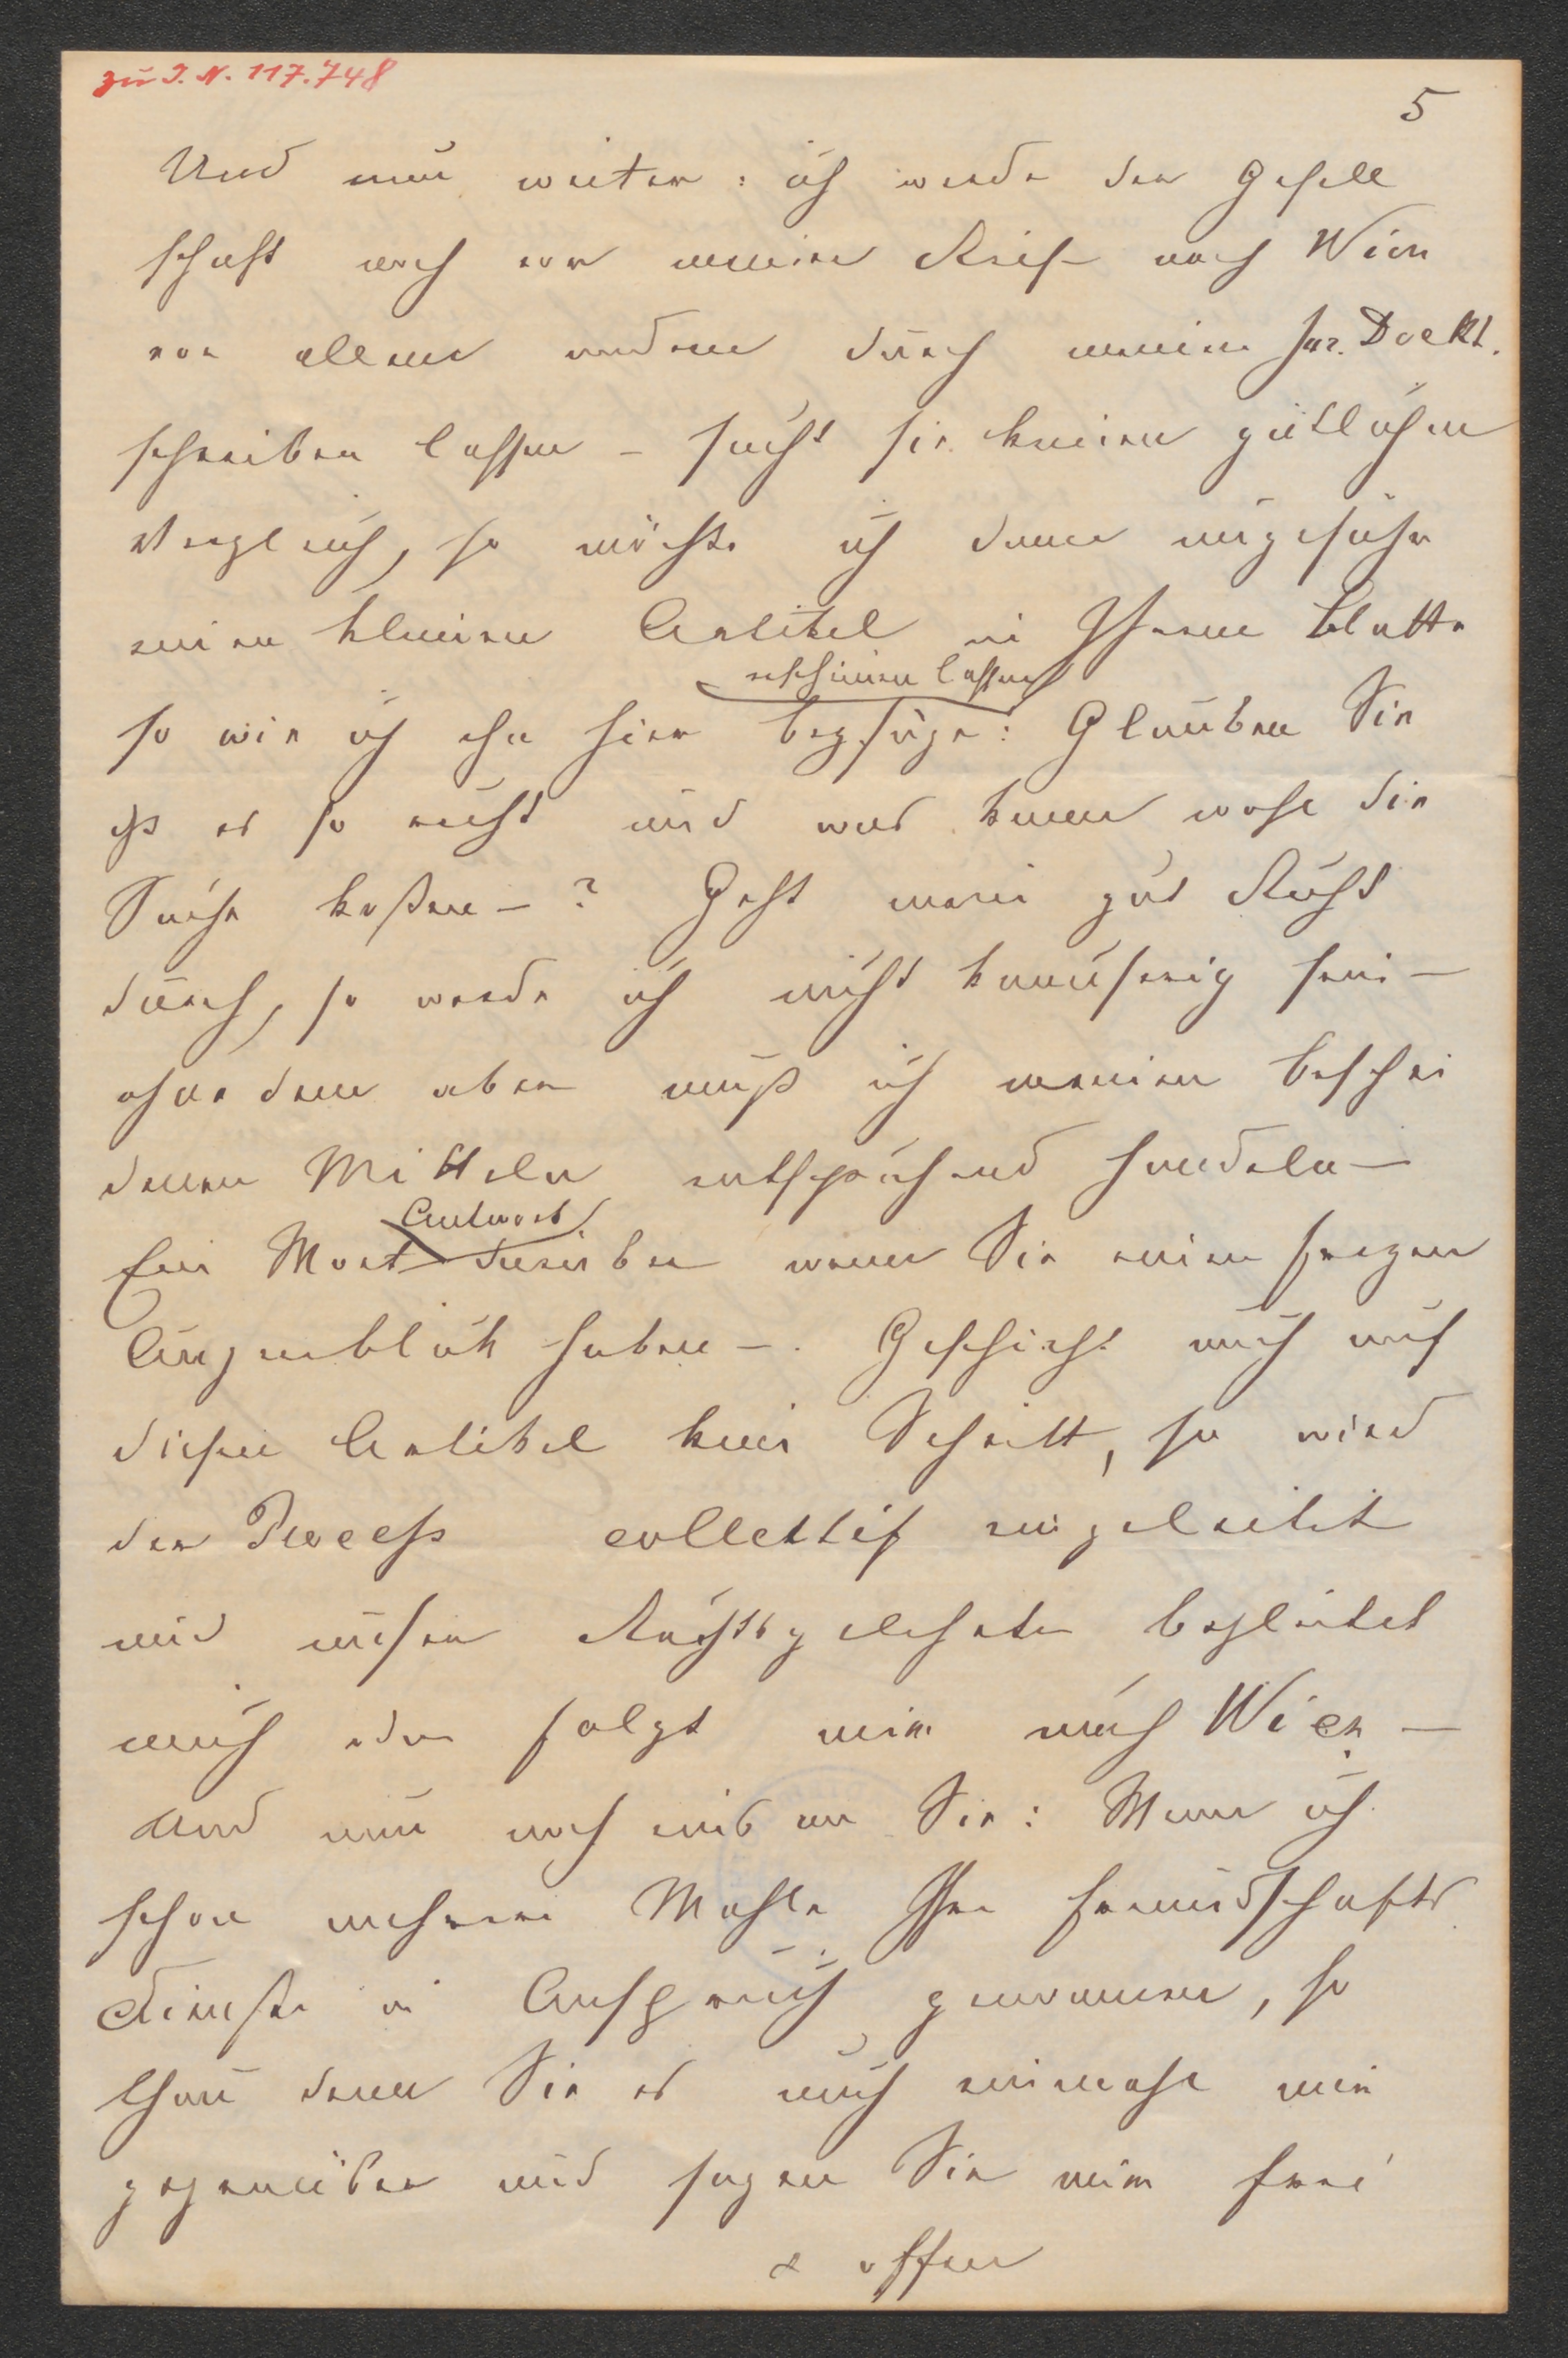 zu I. N. 117.748
5
Und nun weiter: ich werde der Gesell
schaft noch vor meiner Reise nach Wien
vor allem andern durch meinen Jur. Dockt.
schreiben lassen – sucht sie keinen gütlichen
Vergleich, so möchte ich dann ungefähr
einen kleinen Artikel in Ihrem Blatte
erscheinen lassen
so wie ich ihn hier beyfüge: Glauben Sie
ist es so recht und was kann wohl die
Sache kosten –? Geht mein gut Recht
durch, so werde ich nicht knauserig sein –
ohne dem aber muß ich meinen beschei
denen Mitteln entsprechend handeln –
Antwort
Ein Wort darüber wenn Sie einen freyen
Augenblick haben –. Geschieht auch auf
diesen Artikel kein Schritt, so wird
der Process collectif eingeleitet
und unser Rechtsgelehrter begleitet
mich oder folgt mir nach Wien –
Und nun noch eins an Sie: Wenn ich
schon mehrere Mahle Ihre Freundschafts
Dienste in Anspruch genommen, so
thun denn Sie es auch einmahl mir
gegenüber und sagen Sie mir frei
& offen